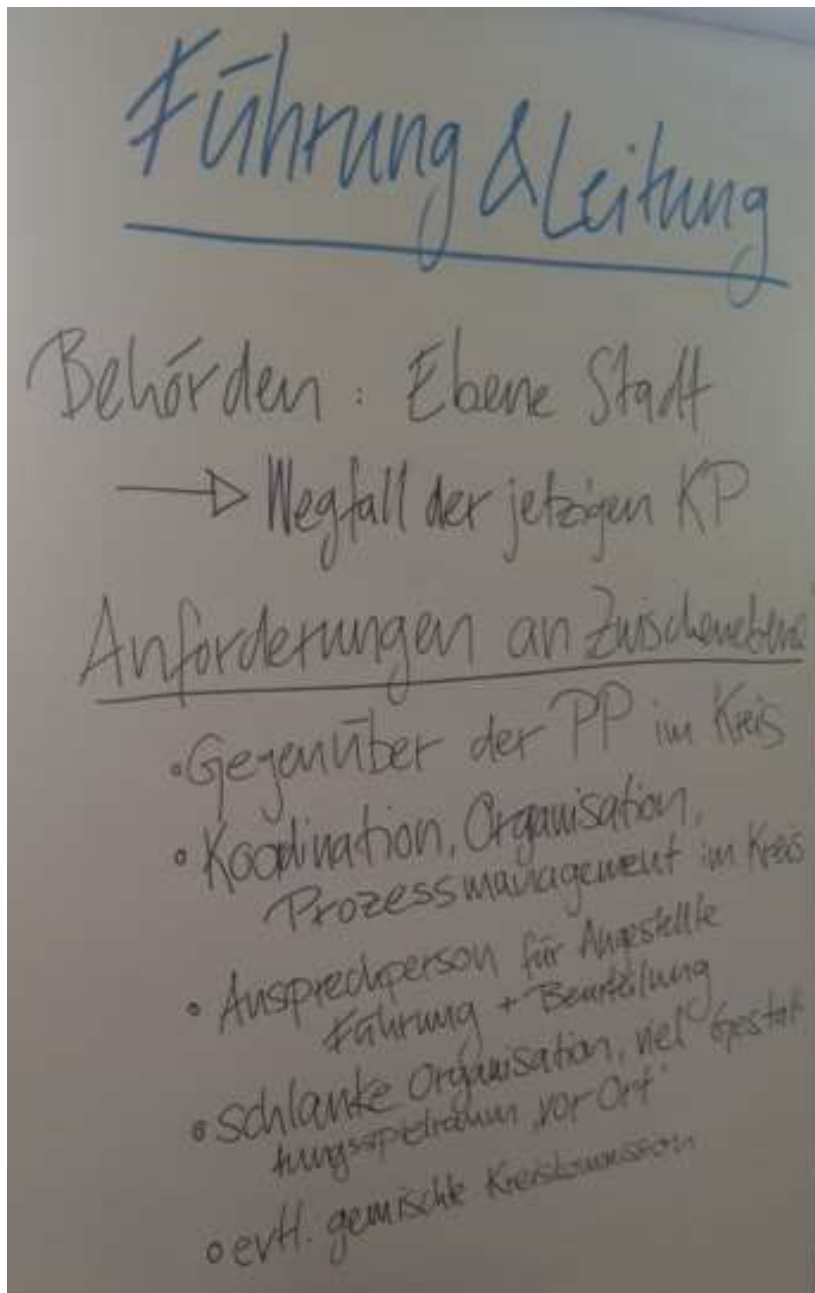 Führung & Leitung
Behörden: Ebene Stadt
→ Wegfall der jetzigen KP
Anforderungen an Zwischenebene
• Gegenüber der PP im Kreis
• Koordination, Organisation,
Prozessmanagement im Kreis
• Ansprechperson für Angestellte
Führung + Beurteilung
• schlanke Organisation, viel Gestal-
tungsspielraum "vor Ort"
• evtl. gemischte Kreiskommission